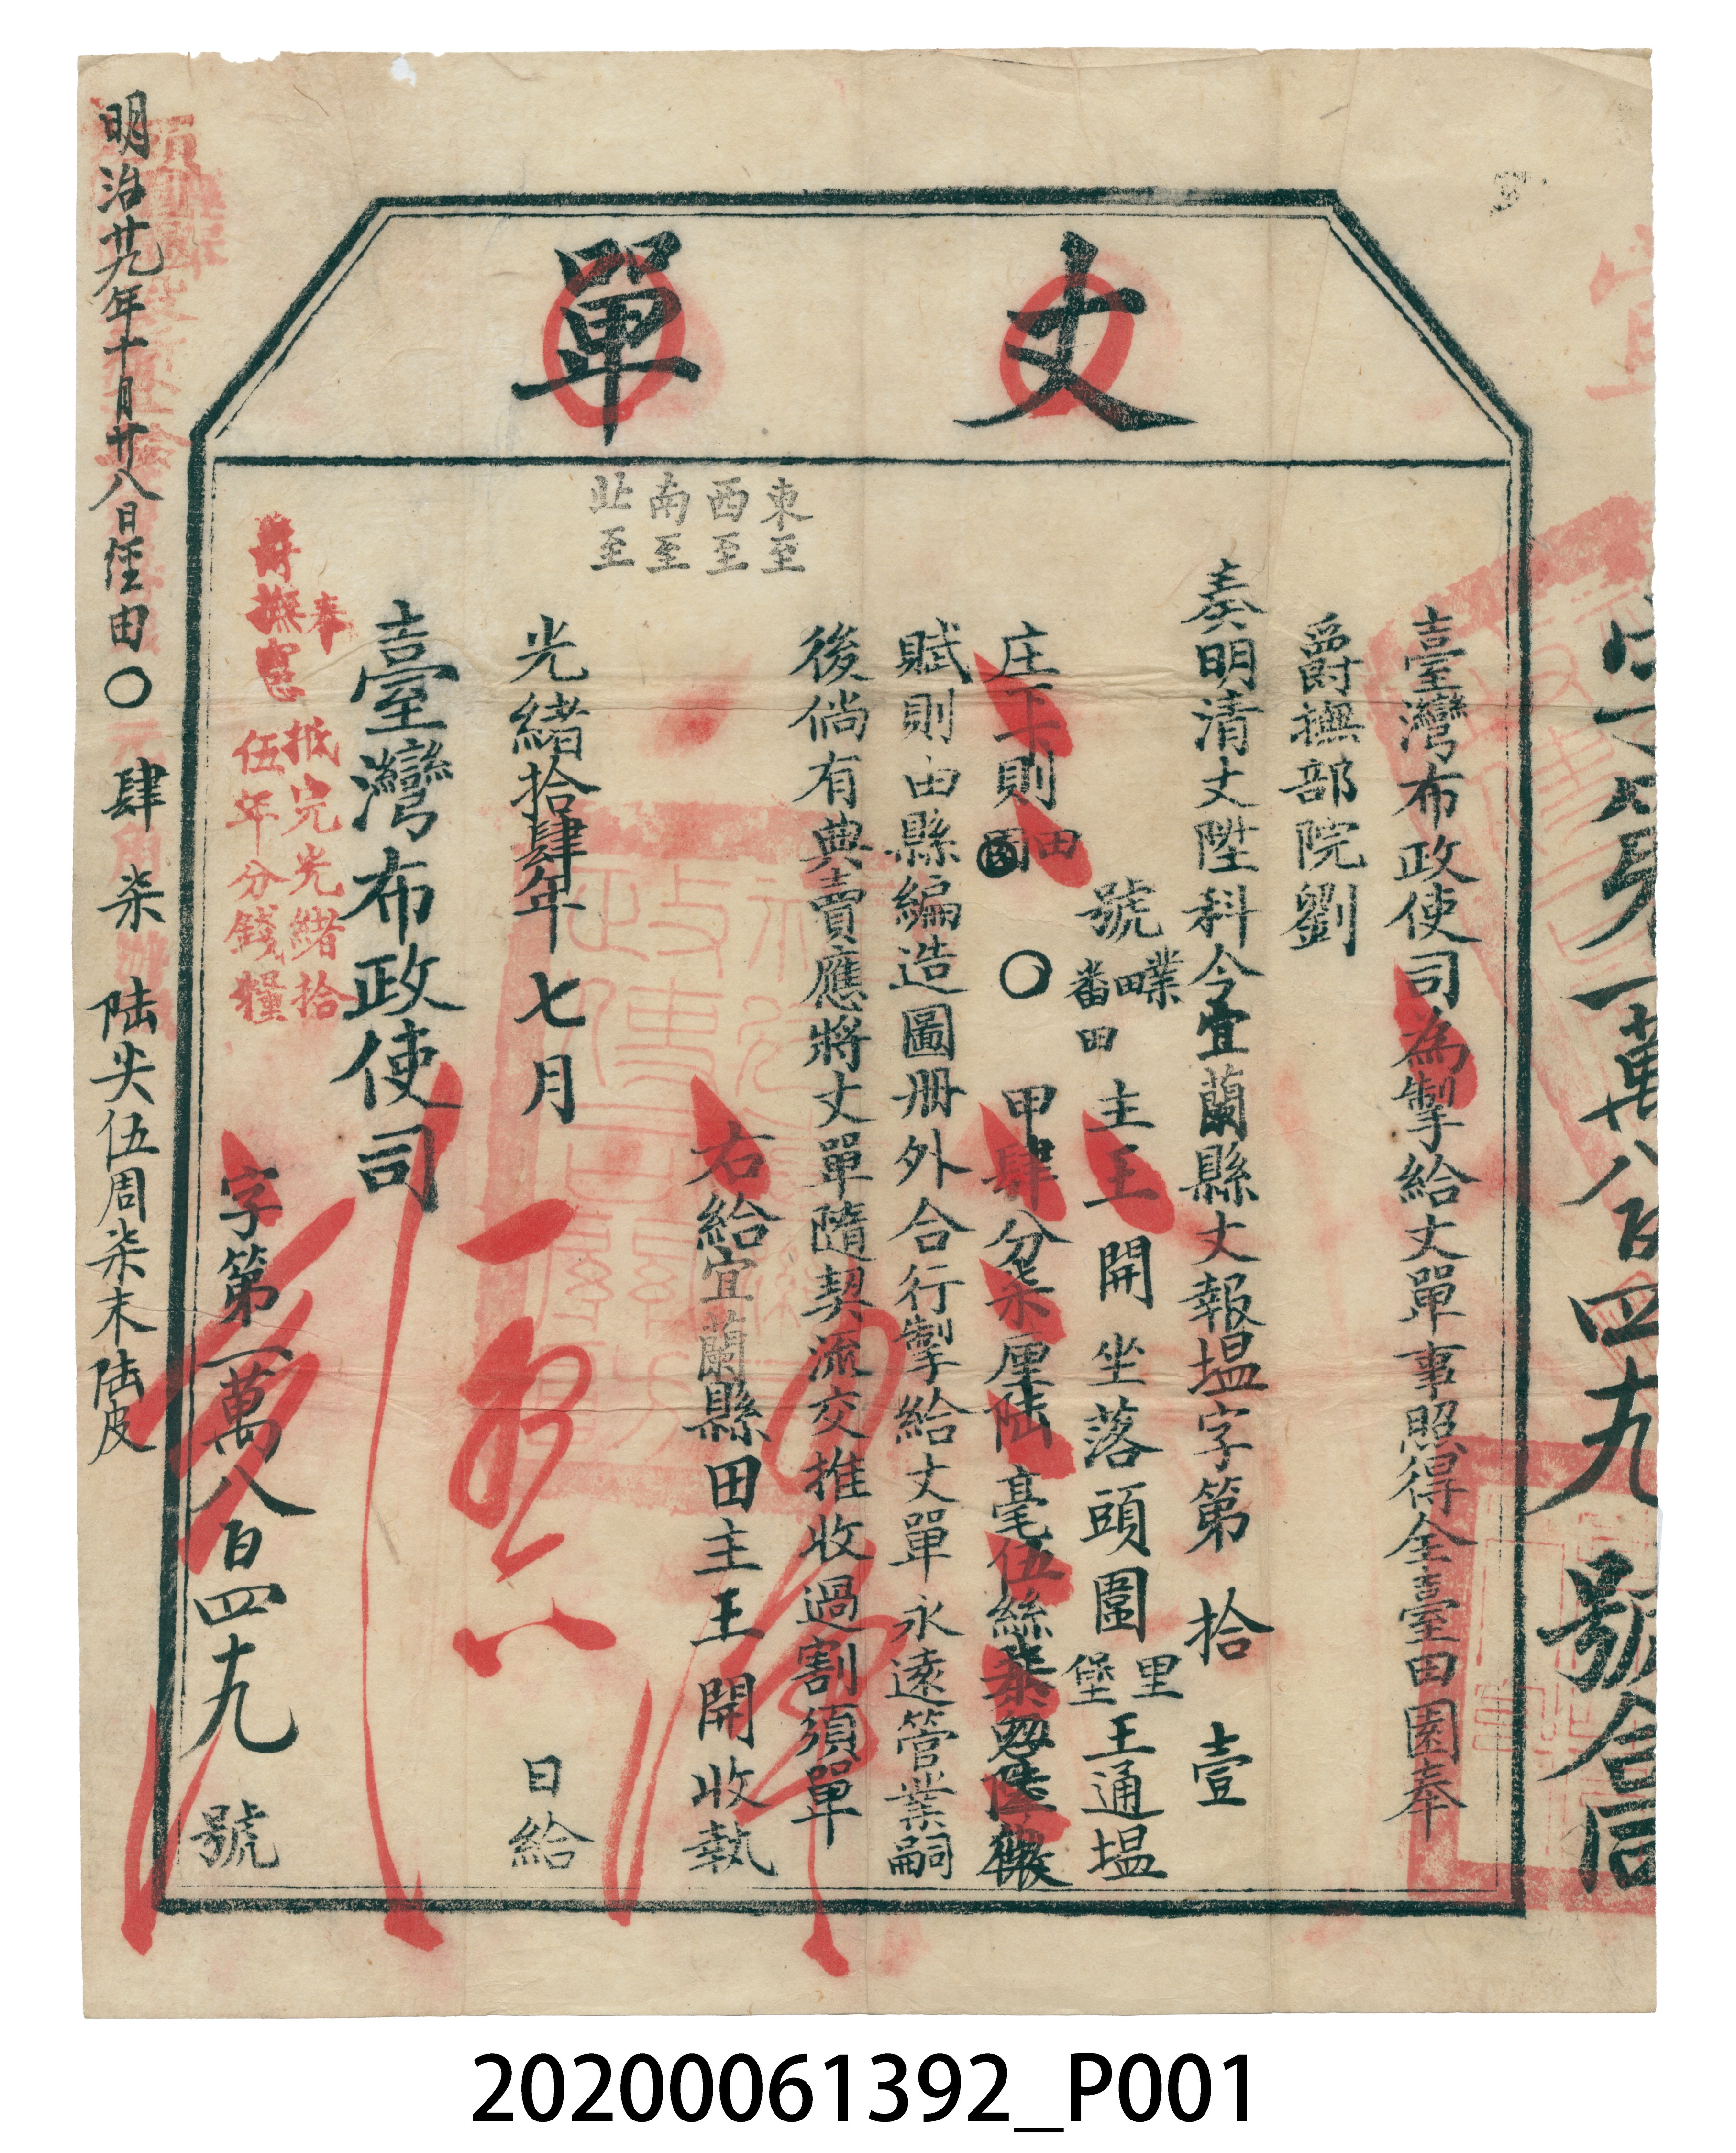 丈單
字第一萬八百四十九號合同
臺灣布政使司為掣給丈單事照得全臺田園奉
爵撫部院劉
奏明清丈陞科今宜蘭縣丈報塭字第拾壹
號業田番田主王開坐落頭圍里堡王通塭
庄下則田園〇甲肆分柒厘陸毫伍絲柒忽陸微
賦則由縣編造圖冊外合行掣給丈單永遠管業嗣
後倘有典賣應將丈單隨契流交推收過割須單
東至
西至
南至
北至
右給宜蘭縣田主王開收執
光緒拾肆年七月日給
臺灣布政使司
奉
爵撫憲
抵完光緒拾
伍年分錢糧
字第一萬八百四十九號
明治廿九年十月廿八日經由〇肆柒陸尖伍周柒末陸皮
20200061392_P001